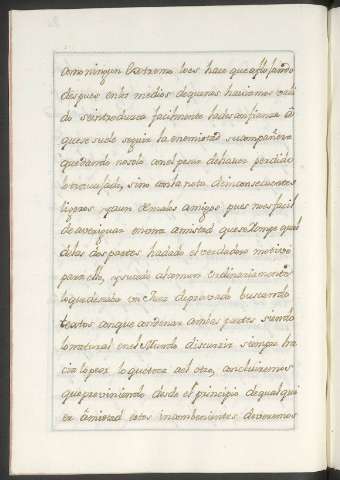 como ningun Extremo loes hace que aflojando
despues en los medios de quenos haviamos vali
do se introdusca facilmente la desconfianza à
que se suele seguir la enemistad su compañera
quedando no solo con el pesar de haver perdido
lo travajado, sino con la nota de inconsecuentes
ligeros y aun de malos amigos pues no es facil
de averiguar en una amistad que se rompe qual
delas dos partes ha dado el verdadero motivo
para ello, y sucede al comun ordinariamente
lo que de un Juez depravado buscando
textos con que condenar ambas partes siendo
lo natural en el Mundo discurrir siempre ha
cia lo peor lo que toca al otro, concluiremos
que previniendo desde el principio de qualqui
er amistad estos incombenientes devemos